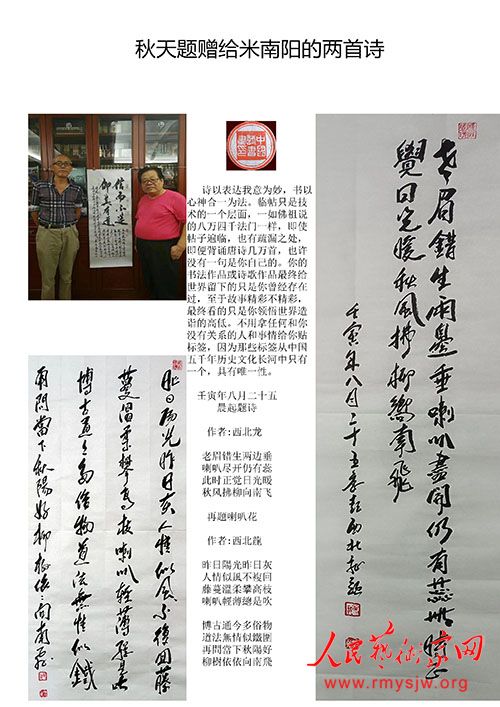 秋天题赠给米南阳的两首诗
诗以表达我意为妙，书以
心神合一为法。临帖只是技
术的一个层面，一如佛祖说
的八万四千法门一样，即使
帖子遍临，也有疏漏之处，
即便背诵唐诗几万首，也许
没有一句是你自己的。你的
书法作品或诗歌作品最终给
世界留下的只是你曾经存在
过，至于故事精彩不精彩，
最终看的只是你领悟世界造
诣的高低。不用拿任何和你
没有关系的人和事情给你贴
标签，因为那些标签从中国
五千年历史文化长河中只有
一个，具有唯一性。
壬寅年八月二十五
晨起题诗
作者:西北龙
老眉错生两边垂
喇叭尽开仍有蕊
此时正觉日光暖
秋风拂柳向南飞
再题喇叭花
作者:西北龍
昨日陽光昨日灰
人情似風不複回
藤蔓溫柔攀高枝
喇叭輕薄總是吹
博古通今多俗物
道法無情似鐵圍
再問當下秋陽好
柳樹依依向南飛
老眉錯生兩邊垂喇叭盡開仍有蕊此時正
覺日光暖秋風拂柳向南飛
壬寅年八月二十五
昨日陽光昨日灰人情似風不複回藤
蔓溫柔攀高枝喇叭輕薄總是吹
博古通今多俗物道法無情似鐵
問當下秋陽好柳樹依依向南飛
人民艺术家网
www.rmysjw.org